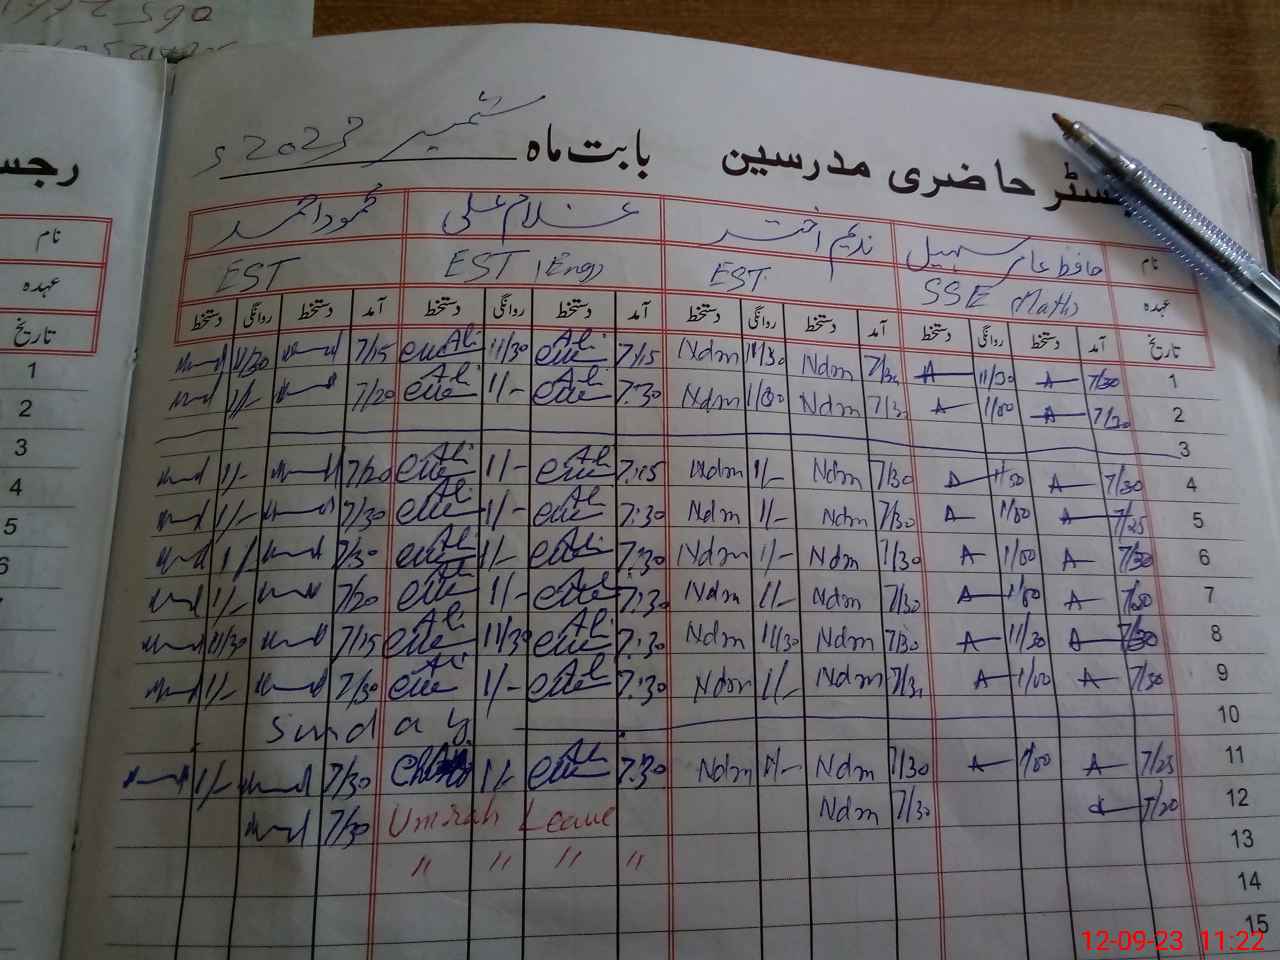 رجسٹر حاضری مدرسین بابت ماہ ستمبر 2023ء
نام حافظ عامر سہیل ندیم اختر غلام علی محمود احمد
عہدہ SSE (Math) EST EST (Eng) EST
تاریخ آمد دستخط روانگی دستخط آمد دستخط روانگی دستخط آمد دستخط روانگی دستخط آمد دستخط روانگی دستخط
1 7/30 A 11/30 A 7/30 Ndm 11/30 Ndm 7:15 Ali 11/30 Ali 7/15 11/30
2 7/30 A 1/00 A 7/30 Ndm 1/00 Ndm 7:30 Ali 1/- Ali 7/20 1/-
3
4 7/30 A 1/00 A 7/30 Ndm 1/- Ndm 7:15 Ali 1/- Ali 7/20 1/-
5 7/25 A 1/00 A 7/30 Ndm 1/- Ndm 7:30 Ali 1/- Ali 7/30 1/-
6 7/30 A 1/00 A 7/30 Ndm 1/- Ndm 7:30 Ali 1/- Ali 7/30 1/-
7 A 1/00 A 7/30 Ndm 1/- Ndm 7:30 Ali 1/- Ali 7/20 1/-
8 7/30 A 11/30 A 7/30 Ndm 11/30 Ndm 7:30 Ali 11/30 Ali 7/15 11/30
9 7/30 A 1/00 A 7/30 Ndm 1/- Ndm 7:30 Ali 1/- Ali 7/30 1/-
10 Sunday
11 7/25 A 1/00 A 7/30 Ndm 1/- Ndm 7:30 Ali 1/- 7/30 1/-
12 7/20 A 7/30 Ndm Umrah Leave 7/30
13 " " " "
14
15
رجس
نام
عہدہ
تاریخ
1
2
3
4
5
6
12-09-23 11:22